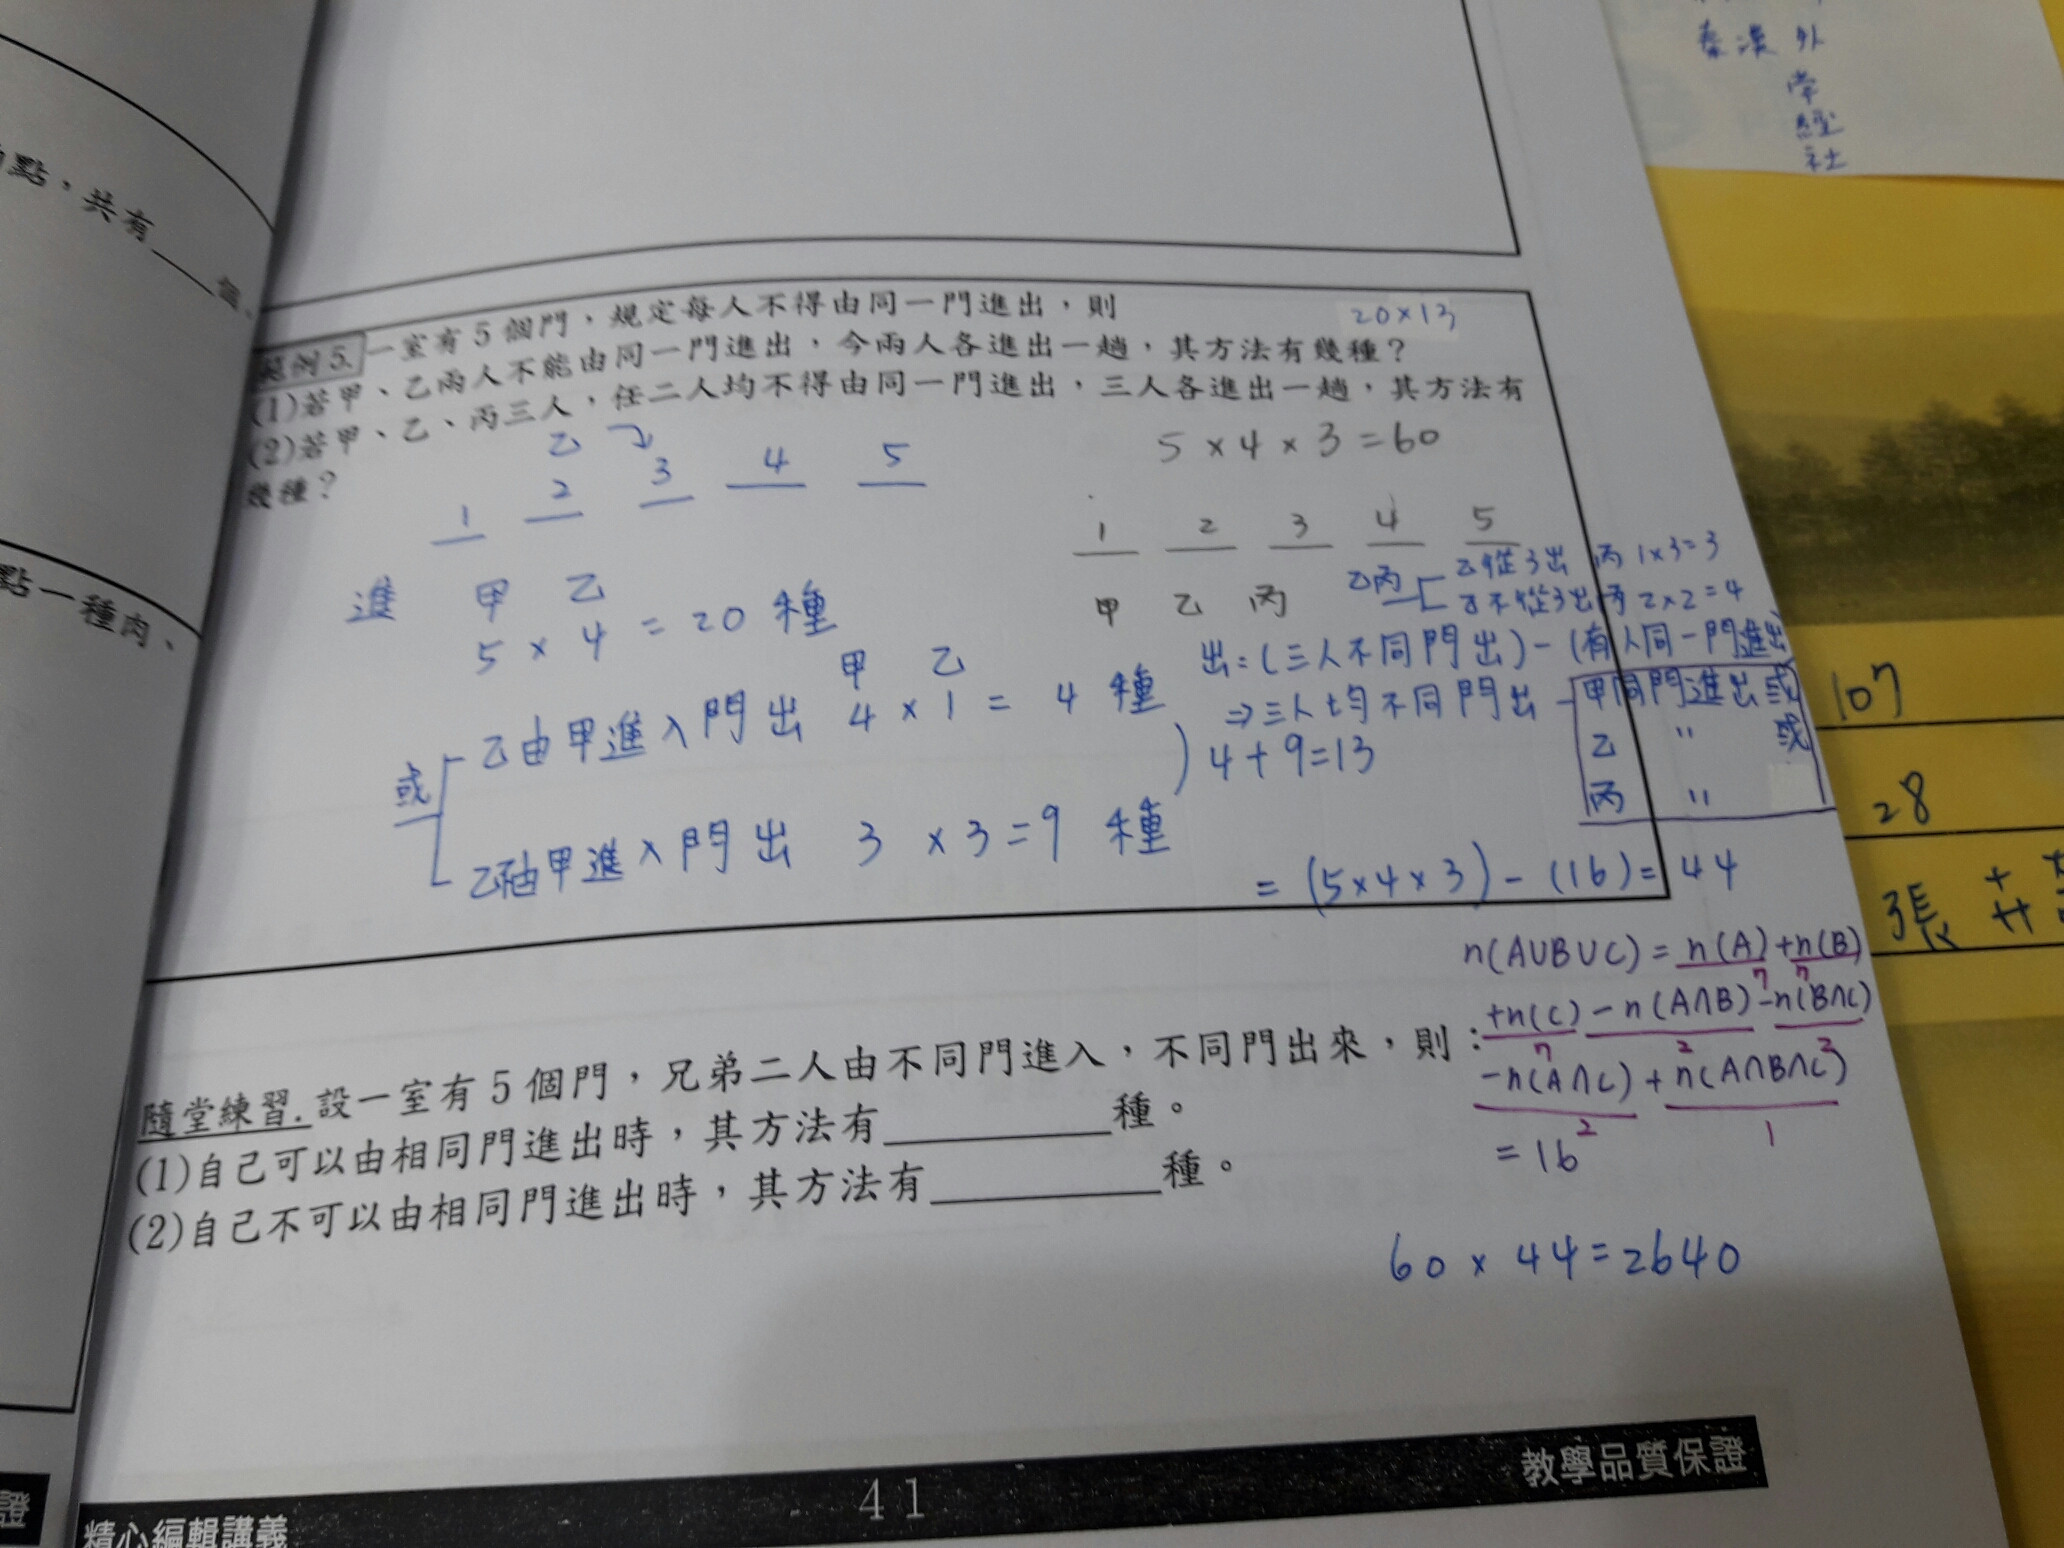 秦漢 外
常
經
社
點,共有____個、
點一種肉、
範例5. 一室有5個門,規定每人不得由同一門進出,則
20×13
(1)若甲、乙兩人不能由同一門進出,今兩人各進出一趟,其方法有幾種?
(2)若甲、乙、丙三人,任二人均不得由同一門進出,三人各進出一趟,其方法有
幾種?
乙
1 2 3 4 5
進 甲 乙
5 × 4 = 20 種
甲 乙
乙由甲進入門出 4 × 1 = 4 種
或
) 4+9=13
甲進入門出 3 × 3 = 9 種
5 × 4 × 3 = 60
1 2 3 4 5
甲 乙 丙
乙丙
乙從3出 丙 1×3=3
乙不從3出 丙 2×2=4
出:(三人不同門出)-(有人同一門進出
⇒三人均不同門出-
甲同門進出或
乙 〃 或
丙 〃
= (5×4×3) - (16) = 44
n(A∪B∪C) = n(A)+n(B)
7 7
+n(C) - n(A∩B) - n(B∩C)
7 2 2
-n(A∩C) + n(A∩B∩C)
2 1
= 16
60 × 44 = 2640
隨堂練習. 設一室有5個門,兄弟二人由不同門進入,不同門出來,則:
(1)自己可以由相同門進出時,其方法有__________種。
(2)自己不可以由相同門進出時,其方法有__________種。
107
28
張
證
精心編輯講義
41
教學品質保證